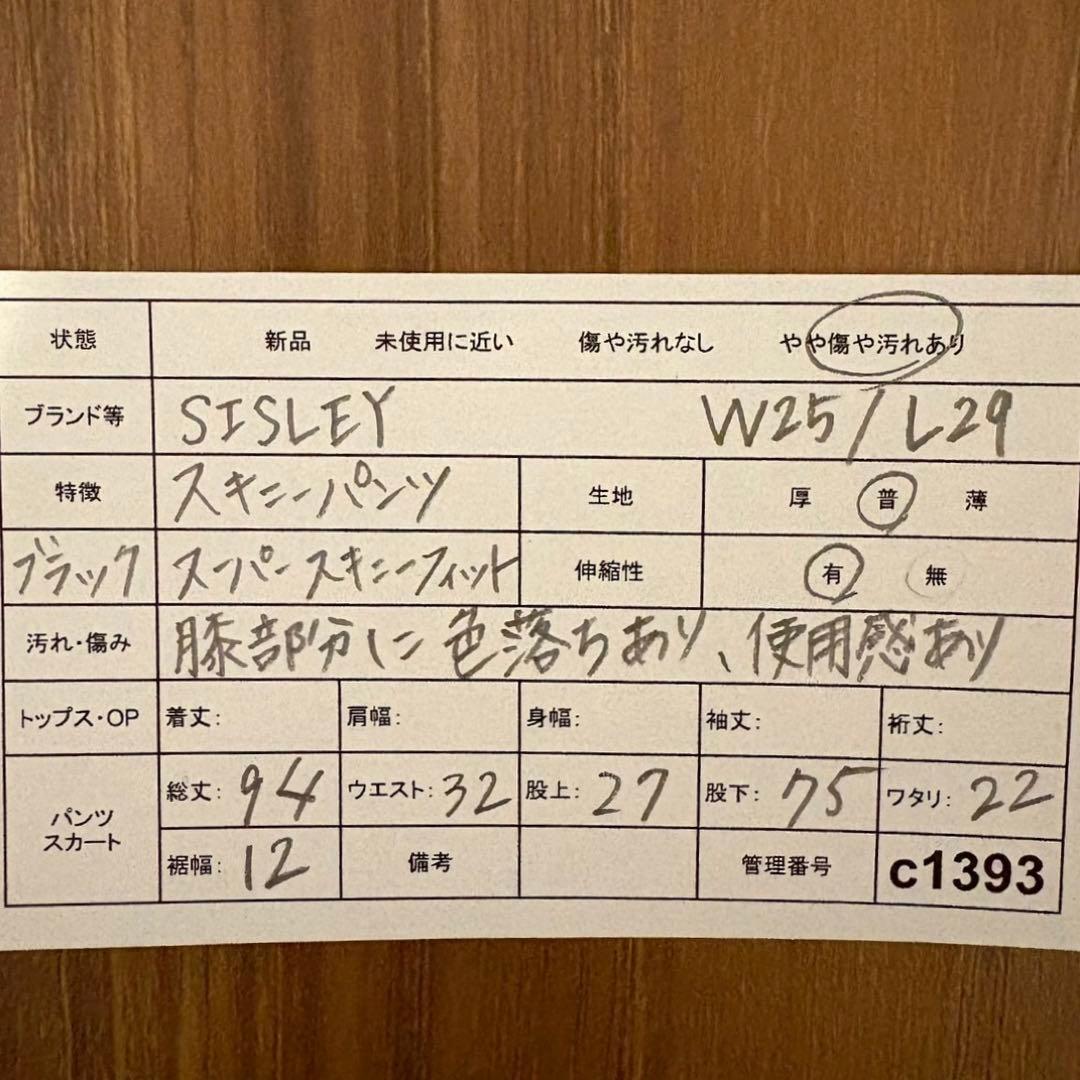 状態 新品 未使用に近い 傷や汚れなし やや傷や汚れあり
ブランド等 SISLEY W25/L29
特徴 スキニーパンツ 生地 厚 普 薄
ブラック スーパースキニーフィット 伸縮性 有 無
汚れ・傷み 膝部分に色落ちあり、使用感あり
トップス・OP 着丈: 肩幅: 身幅: 袖丈: 裄丈:
パンツ スカート 総丈: 94 ウエスト: 32 股上: 27 股下: 75 ワタリ: 22
裾幅: 12 備考 管理番号 c1393